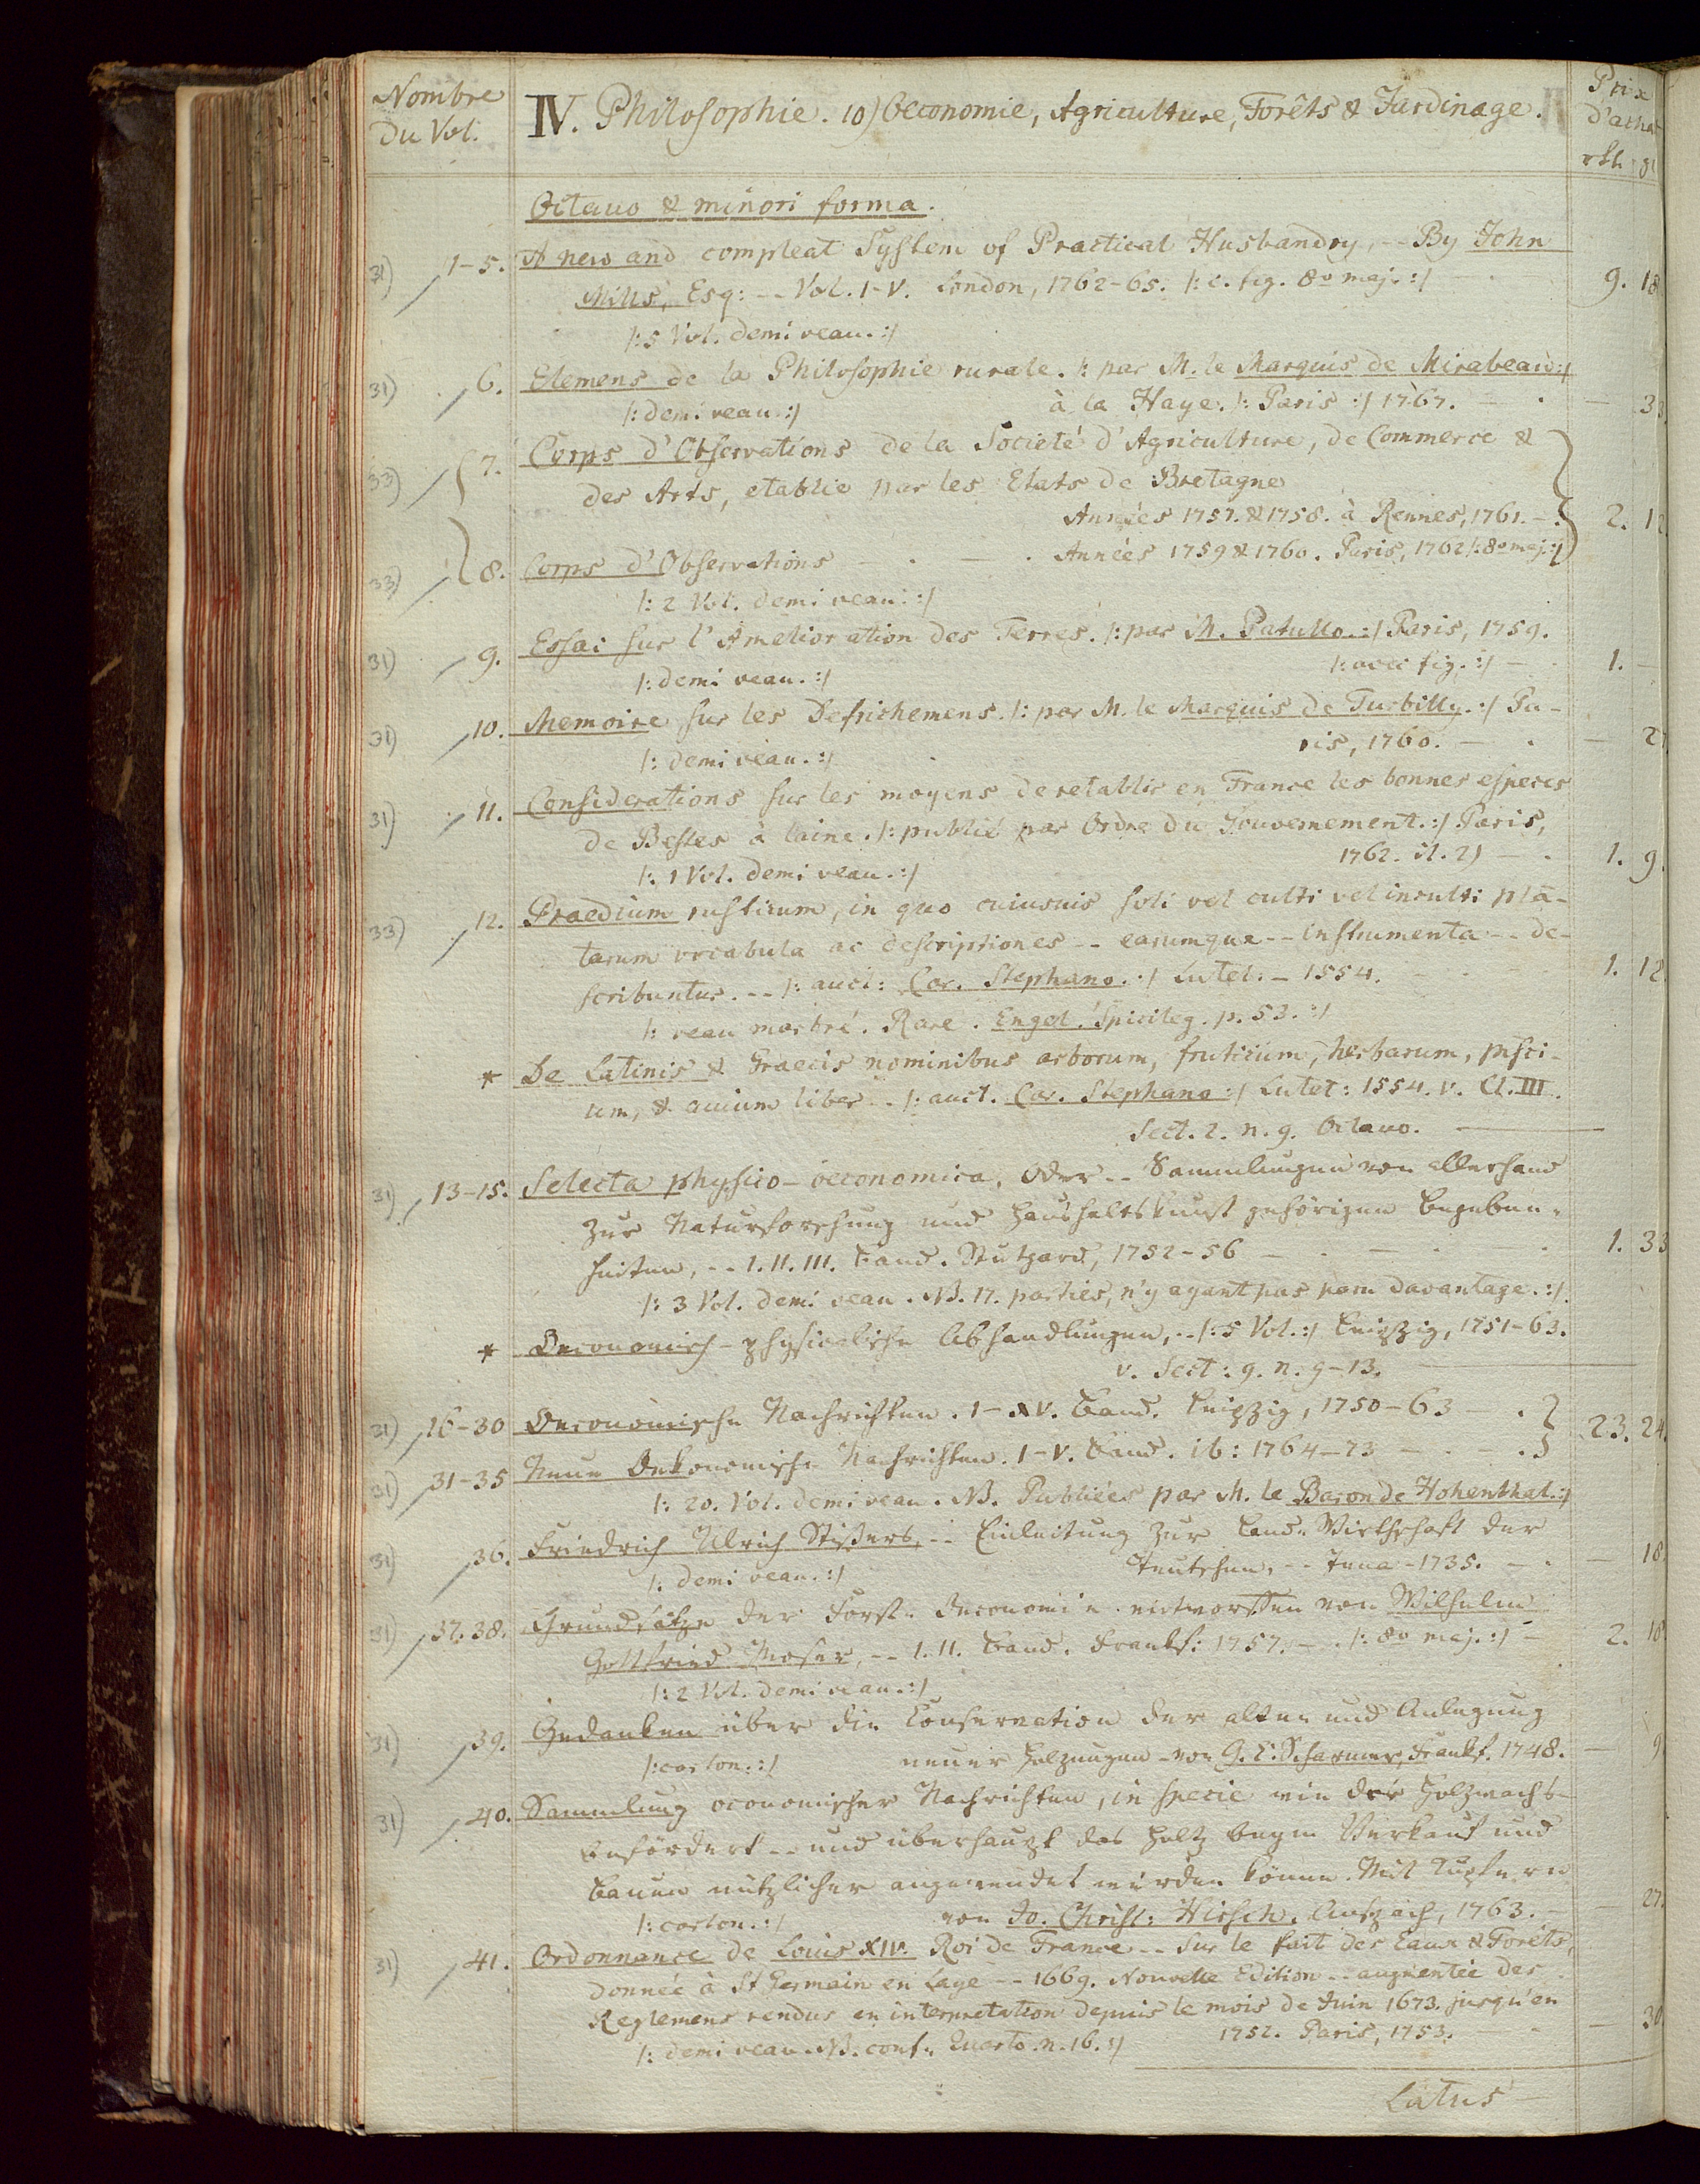 Nombre
Du Vol.
IV. Philosophie. 10) Oeconomie, Agriculture, Forêts & Jardinage.
Prix
d'achat
rth gl
Octavo & minori forma.
31) 1-5. A new and compleat System of Practical Husbandry, -- By John
Mills, Esq: -- Vol. I-V. London, 1762-65. /: c. fig. 8o maj. :/ 9. 18
/: 5 Vol. demi veau. :/
31) 6. Elemens de la Philosophie rurale. /: par M. le Marquis de Mirabeau :/
/: demi veau. :/ à la Haye. /: Paris :/ 1767. - . - 33
33) 7. Corps d'Observations de la Societé d'Agriculture, de Commerce &
des Arts, etablie par les Etats de Bretagne
Années 1757. & 1758. à Rennes, 1761. - . 2. 12
33) 8. Corps d'Observations - . - . Années 1759 & 1760. Paris, 1762 /: 8o maj. :/
/: 2 Vol. demi veau. :/
31) 9. Essai sur l'Amelioration des Terres. /: par M. Patullo. :/ Paris, 1759.
/: demi veau. :/ /: avec fig. :/ - 1. -
31) 10. Memoire sur les Defrichemens. /: par M. le Marquis de Turbilly. :/ Pa-
/: demi veau. :/ ris, 1760. - . - 27
31) 11. Considerations sur les moyens de retablir en France les bonnes especes
de Bestes à laine. /: publié par Ordre du Gouvernement. :/ Paris,
/: 1 Vol. demi veau. :/ 1762. 2) - . 1. 9.
33) 12. Praedium rusticum, in quo cuiusuis soli vel culti vel inculti plā-
tarum vocabula ac descriptiones -- earumque -- instrumenta -- de-
scribuntur. -- /: auct: Car. Stephano. :/ Lutet. - 1554. 1. 12
/: veau marbré. Rare. Engel. Spicileg. p. 53. :/
* De Latinis & Graecis nominibus arborum, fruticum, herbarum, pisci-
um, & auium liber -- /: auct. Car. Stephano :/ Lutet: 1554. v. Cl. III.
Sect. 2. n. 9. Octavo.
31) 13-15. Selecta physico-oeconomica, oder -- Sammlungen von allerhand
zur Naturforschung und Haushaltskunst gehörigen Begeben-
heiten, -- I. II. III. Band. Stutgard, 1752-56 - . - . 1. 33
/: 3 Vol. demi veau. NB. 17. parties, n'y ayant pas paru davantage. :/
* Oeconomisch-physicalische Abhandlungen, -- /: 5 Vol. :/ Leipzig, 1751-63.
v. Sect: 9. n. 9-13.
31) 16-30 Oeconomische Nachrichten. I-XV. Band. Leipzig, 1750-63 . 23. 24.
31) 31-35 Neue Oekonomische Nachrichten. I-V. Band. ib: 1764-73 - . - .
/: 20. Vol. demi veau. NB. Publiées par M. le Baron de Hohenthal. :/
31) 36. Friedrich Ulrich Stißers, -- Einleitung zur Land-Wirthschaft der
/: demi veau. :/ Teutschen, -- Jena - 1735. - . - 18.
31) 37. 38. Grundsätze der Forst-Oeconomie entworffen von Wilhelm
Gottfried Moser, -- I. II. Band. Frankf: 1757. - . /: 8o maj. :/ - 2. 18
/: 2 Vol. demi veau. :/
31) 39. Gedanken über die Conservation der alten und Anlegung
/: carton. :/ neuer Holzungen - von G. L. Scharmer, Frankf. 1748. - 9
31) 40. Sammlung oconomischer Nachrichten, in specie wie der Holzwachs-
befördert -- und überhaupt das Holtz beym Verkauf und
Bauen nützlicher angewendet werden könne. Mit Kupfern
/: carton. :/ von Jo. Christ: Hirsch. Anspach, 1763. - - 27.
31) 41. Ordonnance de Louis XIV. Roi de France -- sur le fait des Eaux & Forêts,
donnée à St Germain en Laye -- 1669. Nouvelle Edition -- augmentée des
Reglemens rendus en interpretation depuis le mois de Juin 1673. jusqu'en
/: demi veau. NB. conf. Quarto. n. 16. :/ 1752. Paris, 1753. - . - 30
Latus -